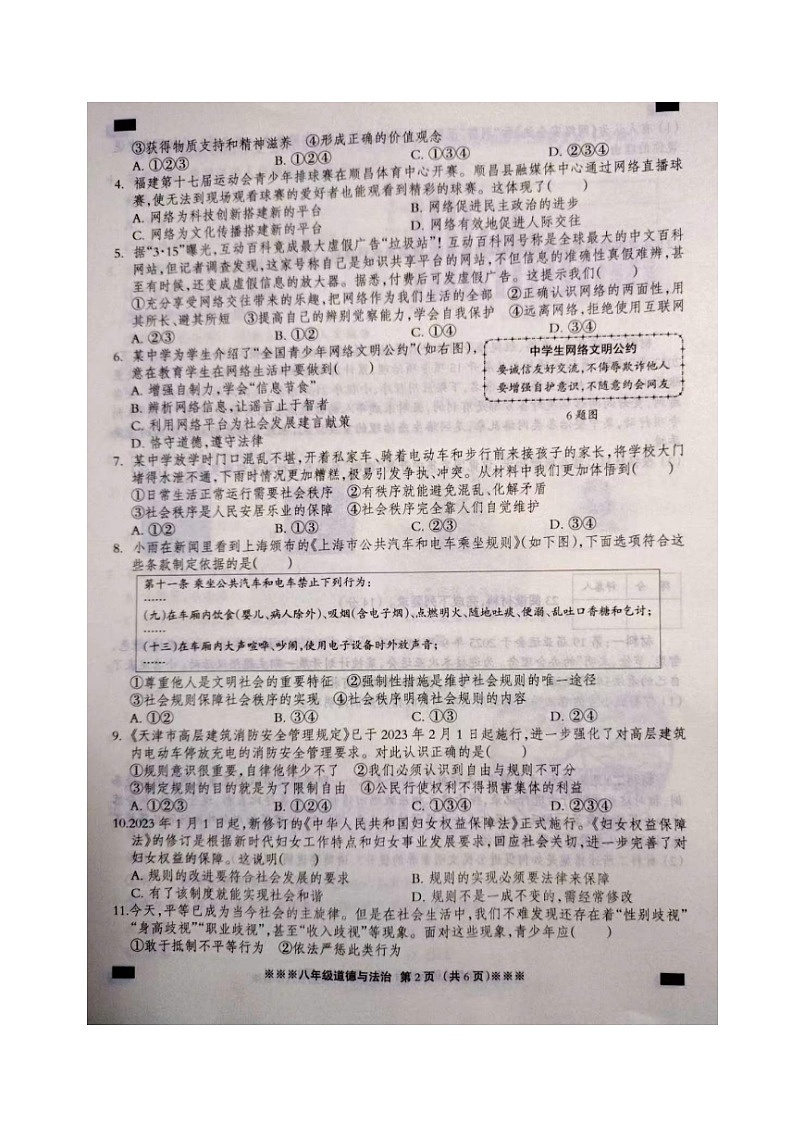 ③获得物质支持和精神滋养　④形成正确的价值观念
A. ①②③　B. ①②④　C. ①③④　D. ②③④
4. 福建第十七届运动会青少年排球赛在顺昌体育中心开赛。顺昌县融媒体中心通过网络直播球
赛,使无法到现场观看球赛的爱好者也能观看到精彩的球赛。这体现了(　　)
A. 网络为科技创新搭建新的平台　B. 网络促进民主政治的进步
C. 网络为文化传播搭建新平台　D. 网络有效地促进人际交往
5. 据“3·15”曝光,互动百科竟成最大虚假广告“垃圾站”！互动百科网号称是全球最大的中文百科
网站,但记者调查发现,这家号称自己是知识共享平台的网站,不但信息的准确性真假难辨,甚
至有时候,还变成虚假信息的放大器。据悉,付费后可发虚假广告。这提示我们(　　)
①充分享受网络交往带来的乐趣,把网络作为我们生活的全部　②正确认识网络的两面性,用
其所长、避其所短　③提高自己的辨别觉察能力,学会自我保护　④远离网络,拒绝使用互联网
A. ②③　B. ①②　C. ①④　D. ③④
6. 某中学为学生介绍了“全国青少年网络文明公约”(如右图),
意在教育学生在网络生活中要做到(　　)
A. 增强自制力,学会“信息节食”
B. 辨析网络信息,让谣言止于智者
C. 利用网络平台为社会发展建言献策
D. 恪守道德,遵守法律
中学生网络文明公约
要诚信友好交流,不侮辱欺诈他人
要增强自护意识,不随意约会网友
6 题图
7. 某中学放学时门口混乱不堪,开着私家车、骑着电动车和步行前来接孩子的家长,将学校大门
堵得水泄不通,下雨时情况更加糟糕,极易引发争执、冲突。从材料中我们更加体悟到(　　)
①日常生活正常运行需要社会秩序　②有秩序就能避免混乱、化解矛盾
③社会秩序是人民安居乐业的保障　④社会秩序完全靠人们自觉维护
A. ①②　B. ①③　C. ②③　D. ③④
8. 小雨在新闻里看到上海颁布的《上海市公共汽车和电车乘坐规则》(如下图),下面选项符合这
些条款制定依据的是(　　)
第十一条 乘坐公共汽车和电车禁止下列行为:
……
(九)在车厢内饮食(婴儿、病人除外)、吸烟(含电子烟)、点燃明火、随地吐痰、便溺、乱吐口香糖和乞讨;
……
(十三)在车厢内大声喧哗、吵闹,使用电子设备时外放声音;
……
①尊重他人是文明社会的重要特征　②强制性措施是维护社会规则的唯一途径
③社会规则保障社会秩序的实现　④社会秩序明确社会规则的内容
A. ①②　B. ③④　C. ①③　D. ②④
9. 《天津市高层建筑消防安全管理规定》已于 2023 年 2 月 1 日起施行,进一步强化了对高层建筑
内电动车停放充电的消防安全管理要求。对此认识正确的是(　　)
①规则意识很重要,自律他律少不了　②我们必须认识到自由与规则不可分
③制定规则的目的就是为了限制自由　④公民行使权利不得损害集体的利益
A. ①②③　B. ①②④　C. ①③④　D. ②③④
10.2023 年 1 月 1 日起,新修订的《中华人民共和国妇女权益保障法》正式施行。《妇女权益保障
法》的修订是根据新时代妇女工作特点和妇女事业发展要求,回应社会关切,进一步完善了对
妇女权益的保障。这说明(　　)
A. 规则的改进要符合社会发展的要求　B. 规则的实现必须要法律来保障
C. 有了该制度就能实现社会和谐　D. 规则不是一成不变的,需经常修改
11.今天,平等已成为当今社会的主旋律。但是在社会生活中,我们不难发现还存在着“性别歧视”
“身高歧视”“职业歧视”,甚至“收入歧视”等现象。面对这些现象,青少年应(　　)
①敢于抵制不平等行为　②依法严惩此类行为
※※※八年级道德与法治　第 2 页（共 6 页）※※※